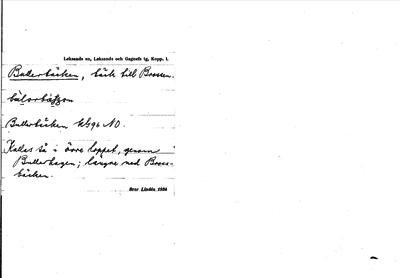 Leksands sn, Leksands och Gagnefs tg, Kopp. l.
Bullerbäcken, bäck till Brossen.
Bullerbäcken Kb 96 NO.
Kallas så i övre loppet, genom
Bullerhagen; längre ned Bross-
bäcken.
Bror Lindén 1934